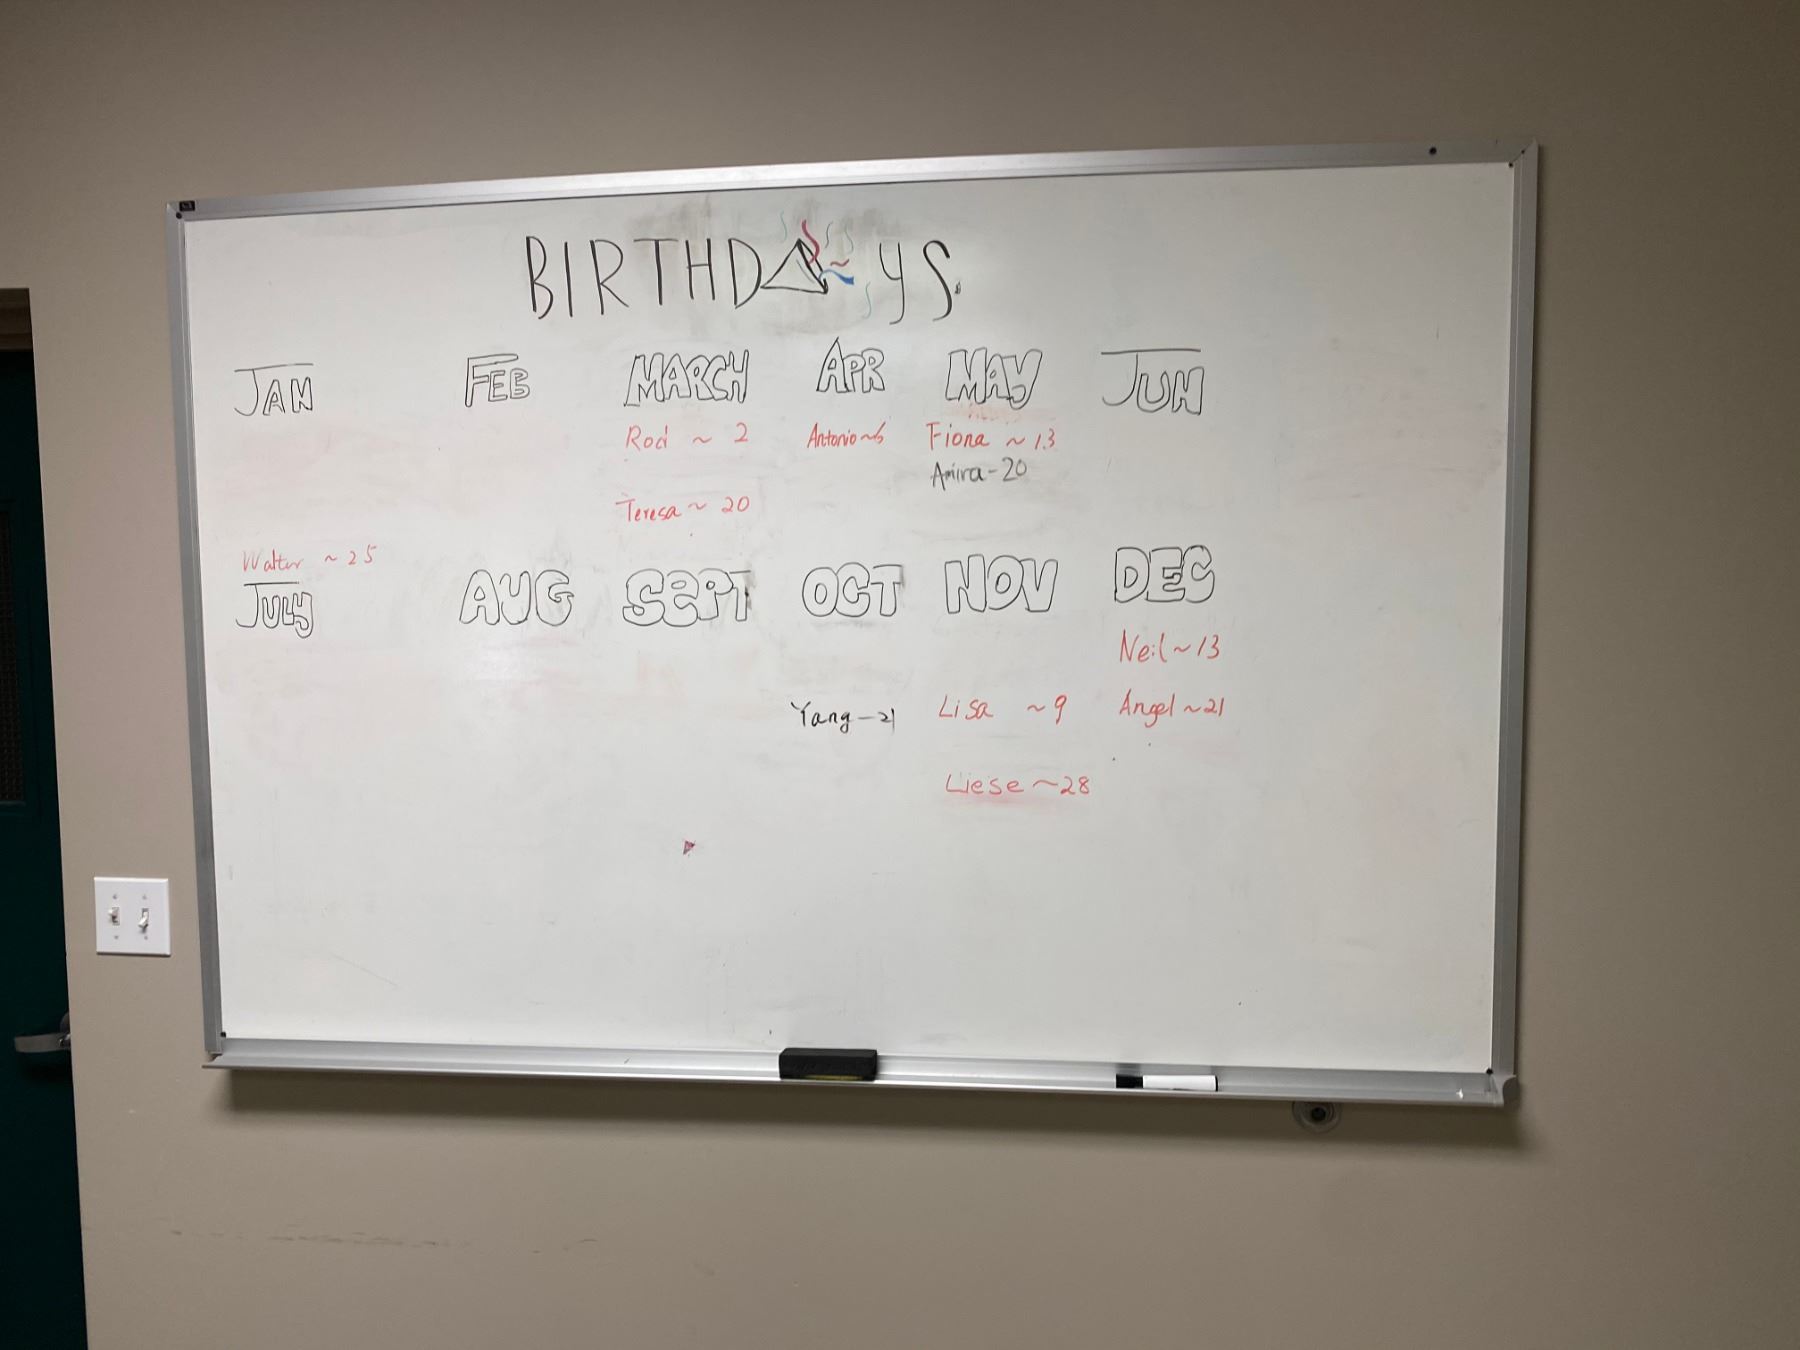 BIRTHDAYS
JAN FEB MARCH APR MAY JUN
Rod ~ 2 Antonio ~ 6 Fiona ~ 13
Amira - 20
Teresa ~ 20
Walter ~ 25
JULY AUG SEPT OCT NOV DEC
Neil ~ 13
Yang - 21 Lisa ~ 9 Angel ~ 21
Liese ~ 28